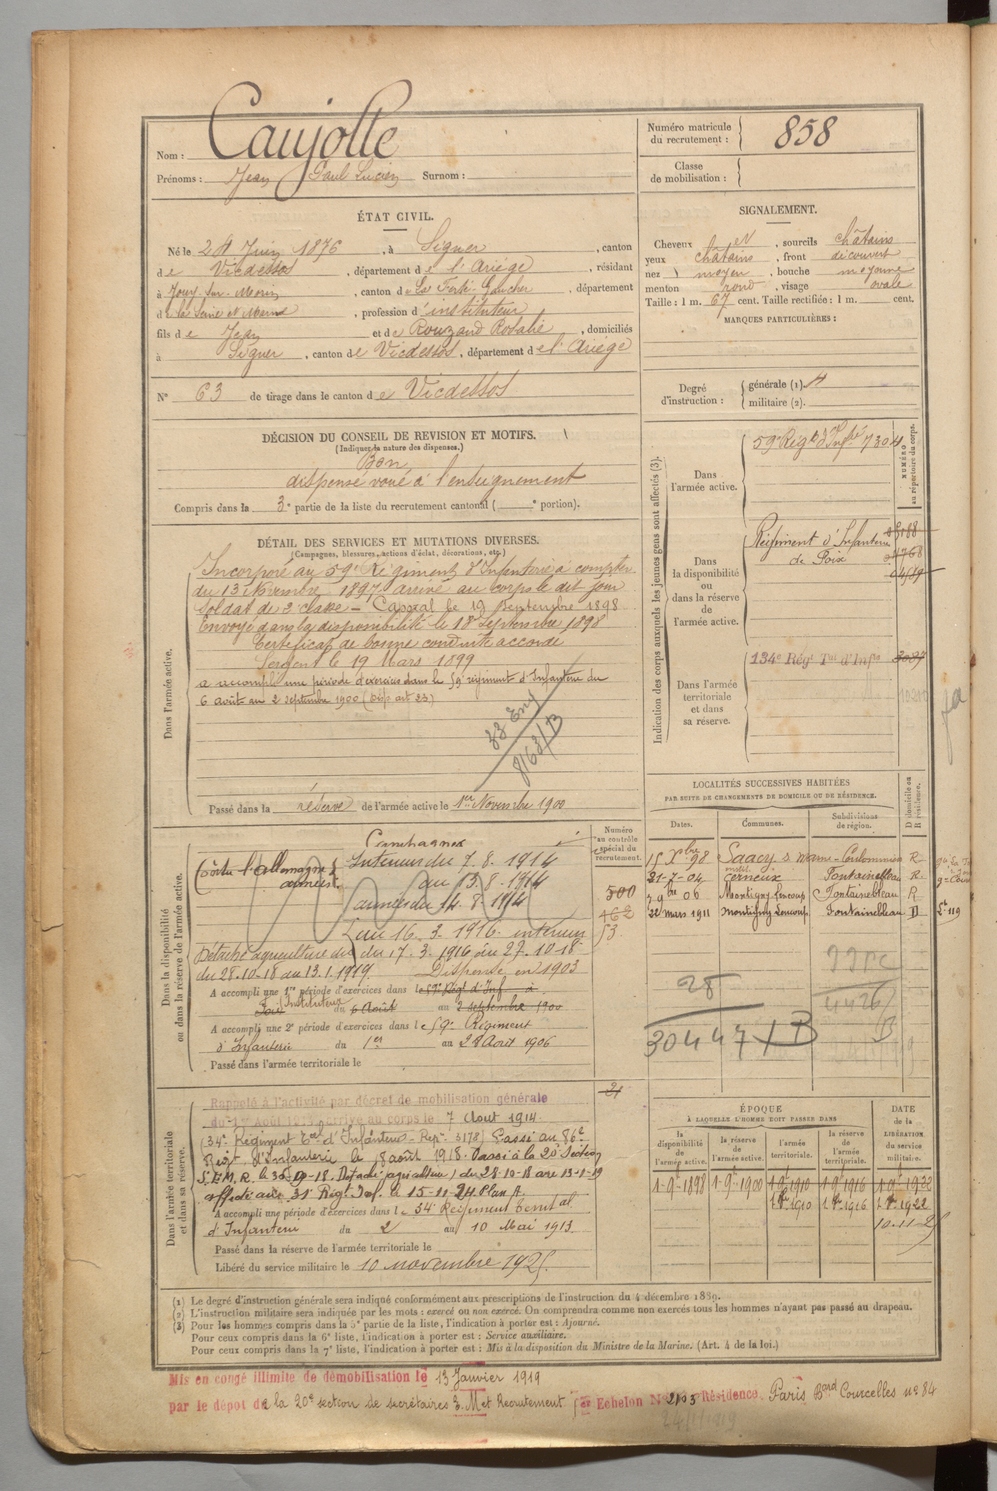 Nom : Caujolle
Prénoms : Jean Paul Lucien Surnom :
Numéro matricule du recrutement : 858
Classe de mobilisation :
ÉTAT CIVIL.
Né le 24 Juin 1876, à Siguer, canton
de Vicdessos, département de l'Ariège, résidant
à Jouy-sur-Morin, canton de La Ferté Gaucher, département
de la Seine et Marne, profession d'instituteur
fils de Jean et de Rouzaud Rosalie, domiciliés
à Siguer, canton de Vicdessos, département de l'Ariège
N° 63 de tirage dans le canton de Vicdessos
SIGNALEMENT.
Cheveux et, sourcils châtains
yeux châtains, front découvert
nez moyen, bouche moyenne
menton rond, visage ovale
Taille : 1 m. 67 cent. Taille rectifiée : 1 m. cent.
MARQUES PARTICULIÈRES :
Degré d'instruction : générale (1). 4
militaire (2).
DÉCISION DU CONSEIL DE REVISION ET MOTIFS.
(Indiquer la nature des dispenses.)
Bon
dispensé voué à l'enseignement
Compris dans la 3e partie de la liste du recrutement cantonal ( e portion).
DÉTAIL DES SERVICES ET MUTATIONS DIVERSES.
(Campagnes, blessures, actions d'éclat, décorations, etc.)
Dans l'armée active.
Incorporé au 59e Régiment d'Infanterie à compter
du 13 Novembre 1897, arrivé au corps le dit jour
Soldat de 2e classe – Caporal le 19 Septembre 1898
Envoyé dans la disponibilité le 18 Septembre 1898
Certificat de bonne conduite accordé
Sergent le 19 Mars 1899
a accompli une période d'exercices dans le 59e régiment d'Infanterie du
6 août au 2 septembre 1900 (Disp. art 23)
Passé dans la réserve de l'armée active le 1er Novembre 1900
Indication des corps auxquels les jeunes gens sont affectés (3).
NUMÉRO au répertoire du corps.
Dans l'armée active.
59e Régt d'Infie 7304
Dans la disponibilité ou dans la réserve de l'armée active.
Régiment d'Infanterie
de Foix
Dans l'armée territoriale et dans sa réserve.
134e Régt Tal d'Infie
LOCALITÉS SUCCESSIVES HABITÉES
PAR SUITE DE CHANGEMENTS DE DOMICILE OU DE RÉSIDENCE.
Dates. Communes. Subdivisions de région. D domicile ou R résidence.
15 Xbre 98 Saacy s Marne Coulommiers R
31-7-04 Cerneux Fontainebleau R
9bre 06 Montigny Lencoup Fontainebleau R
22 mars 1911 Montigny Lencoup Fontainebleau D
28
30447 / B
Dans la disponibilité ou dans la réserve de l'armée active.
Numéro au contrôle spécial du recrutement.
500
53
Campagnes
Contre l'Allemagne
Intérieur du 7.8.1914
au 13.8.1914
armées du 14.8.1914
au 16.3.1916 intérieur
Détaché agriculture du 17.3.1916 au 27.10.18
du 28.10.18 au 13.1.1919. Dispensé en 1903
A accompli une 1re période d'exercices dans le 59e Régt d'Inf à
Foix Instituteur du 6 Août au 2 septembre 1900
A accompli une 2e période d'exercices dans le 59e Régiment
d'Infanterie du 1er au 28 Août 1906
Passé dans l'armée territoriale le
Dans l'armée territoriale et dans sa réserve.
Rappelé à l'activité par décret de mobilisation générale
du 1er Août 1914 arrivé au corps le 7 Août 1914
(34e Régiment Eral d'Infanterie - Rep. 3178) Passé au 86e
Régt d'Infanterie le 8 août 1918. Passé à la 20e Section
S.E.M.R.
affecté au 31e Rég. Inf. le 15-11-24 Plan A.
A accompli une période d'exercices dans le 34e Régiment territorial
d'Infanterie du 2 au 10 Mai 1913
Passé dans la réserve de l'armée territoriale le
Libéré du service militaire le 10 novembre 1925.
ÉPOQUE
À LAQUELLE L'HOMME DOIT PASSER DANS
la disponibilité de l'armée active. la réserve de l'armée active. l'armée territoriale. la réserve de l'armée territoriale.
DATE de la LIBÉRATION du service militaire.
1-9-1898 1-9-1900 1-9-1910 1-9-1916 1-9-1922
1-8-1910 1-8-1916 1-8-1922
10-11-25
(1) Le degré d'instruction générale sera indiqué conformément aux prescriptions de l'instruction du 4 décembre 1889.
(2) L'instruction militaire sera indiquée par les mots : exercé ou non exercé. On comprendra comme non exercés tous les hommes n'ayant pas passé au drapeau.
(3) Pour les hommes compris dans la 5e partie de la liste, l'indication à porter est : Ajourné.
Pour ceux compris dans la 6e liste, l'indication à porter est : Service auxiliaire.
Pour ceux compris dans la 7e liste, l'indication à porter est : Mis à la disposition du Ministre de la Marine. (Art. 4 de la loi.)
Mis en congé illimité de démobilisation le 13 Janvier 1919
par le dépôt de la 20e section de secrétaires E.M et Recrutement 1er Echelon N° 2103 Résidence Paris Bard Courcelles n° 84